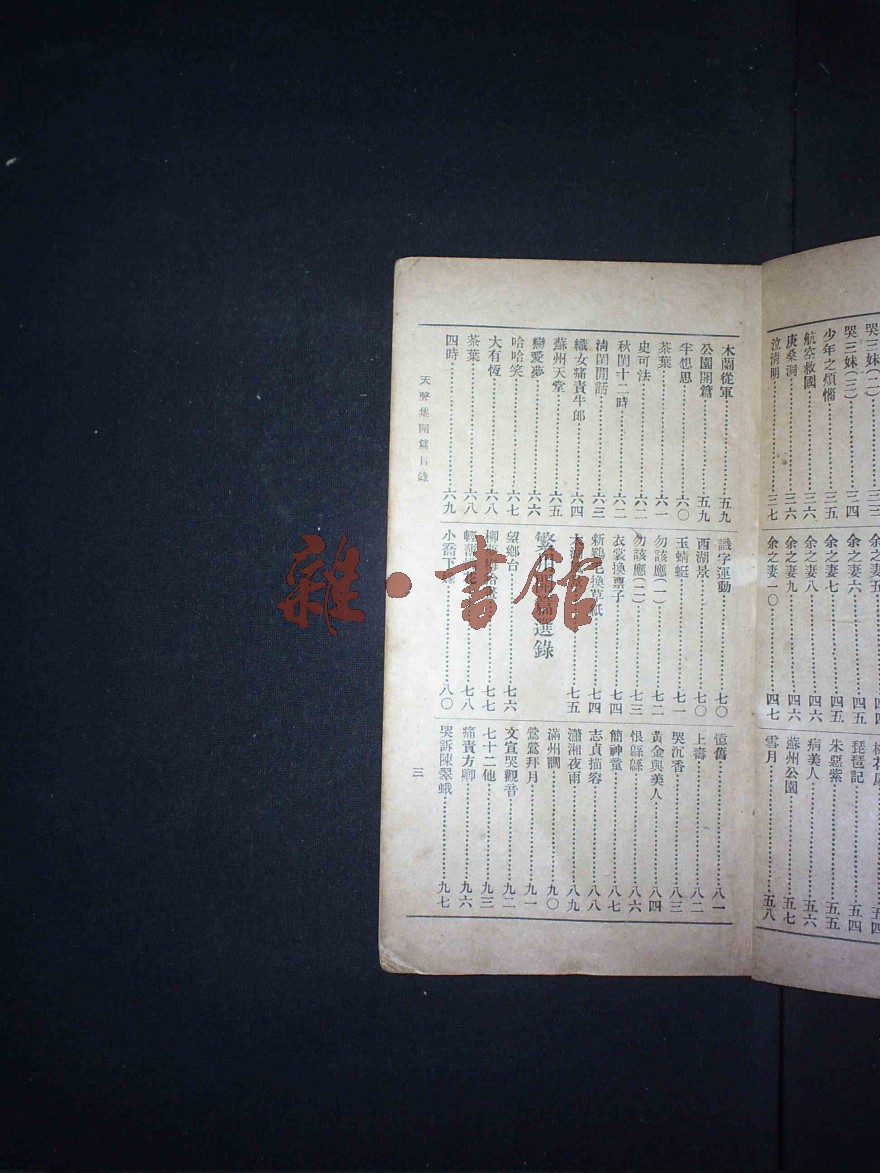 哭三妹(二)……三三
哭三妹(三)……三四
少年之煩惱……三五
航空救國……三六
庚桑洞……三六
泣清明……三七
余之妻五……四四
余之妻六……四五
余之妻七……四五
余之妻八……四六
余之妻九……四六
余之妻一〇……四七
琵琶記……五四
朱惡紫……五五
病美人……五六
蘇州公園……五七
雪月……五八
木蘭從軍……五九
公園開篇……五九
半想思……六〇
茶葉……六一
史可法……六二
秋閨十二時……六二
清閨閒話……六三
織女痛責牛郎……六四
蘇州天堂……六五
戀愛夢……六六
哈哈笑……六七
大有恆……六八
茶葉……六八
四時……六九
識字運動……七〇
西湖景……七〇
玉蜻蜓……七一
勿該應(一)……七二
勿該應(二)……七三
衣裳換票子……七四
新鷄換草紙……七四
七五
選錄
望鄉台……七六
七七
七八
小喬下嫁……八〇
憶舊……八一
上壽……八二
哭沉香……八三
黃金與美人……八四
恨緜緜……八六
簡神童……八七
志貞描容……八八
瀟湘夜雨……八九
滿州調……九〇
鶯鶯拜月……九一
文宣哭觀音……九二
七十二他……九三
痛責方卿……九六
哭訴陳翠娥……九七
天聲集開篇目錄
三
雜·書館